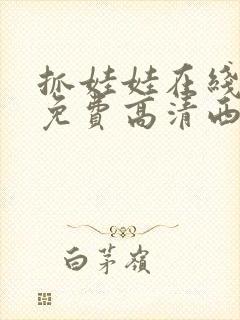 抓娃娃在线
免費高清西
白茅嶺